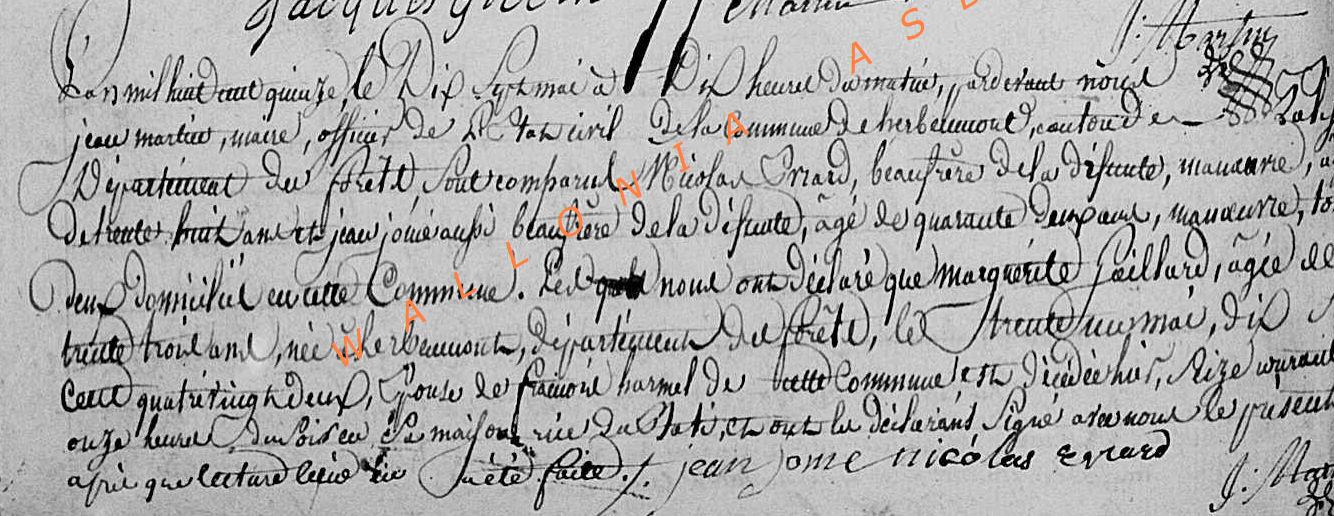 Jacques
J. Martin
L'an mil huit cent quinze, le Dix Sept mai à Dix heures du matin, pardevant nous
jean martin, maire, officier de L'Etat civil De la Commune de herbeumont, canton de
Département des forêts, sont comparus Nicolas Evrard, beaufrère de la défunte, manœuvre,
de trente huit ans et jean jomé aussi beaufrère de la défunte, âgé de quarante deux ans, manœuvre, to
Deux domiciliés en cette Commune. Lesquels nous ont déclaré que marguérite Gaillard, âgée de
trente trois ans, née à herbeumont, département des forêts, le trente un mai, dix
Cent quatre vingt deux, Epouse de françois harmel de cette Commune est décédée hier, Seize courant
onze heures du Soir en Sa maison rue du et ont les déclarans Signé avec nous le présent
après que lecture leur en a été faite./. jean jome nicolas evrard
J. Mar
WALLONIA ASB